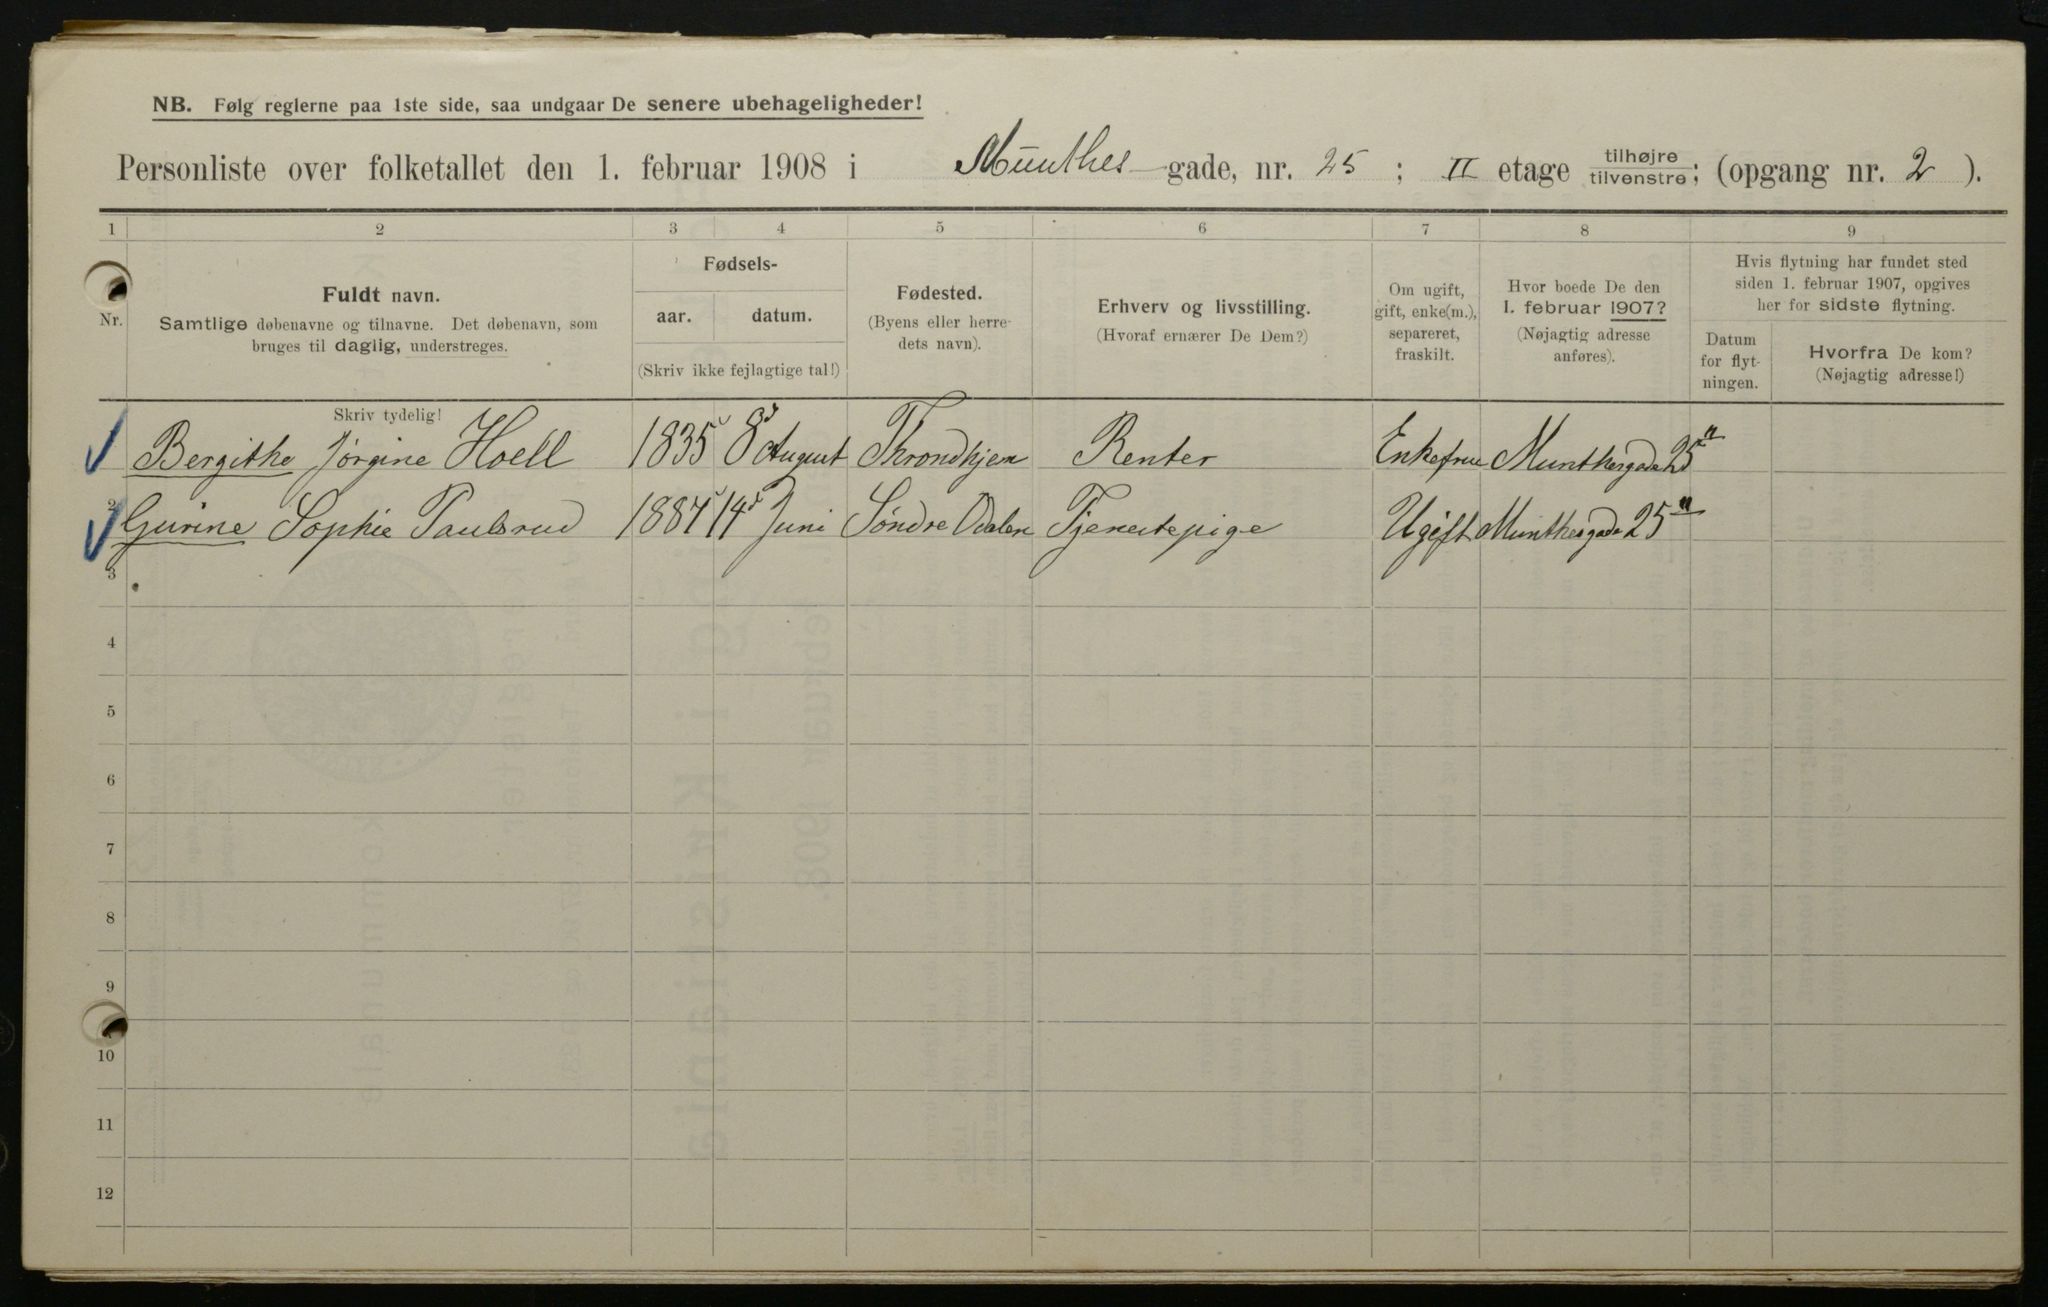 NB. Følg reglerne paa 1ste side, saa undgaar De senere ubehageligheder!
Personliste over folketallet den 1. februar 1908 i Munthes-gade, nr. 25 ; II etage tilhøjre tilvenstre; (opgang nr. 2 ).
1 2 3 4 5 6 7 8 9
Nr.
Fuldt navn.
Samtlige døbenavne og tilnavne. Det døbenavn, som
bruges til daglig, understreges.
Skriv tydelig!
Fødsels-
aar. datum.
(Skriv ikke fejlagtige tal!)
Fødested.
(Byens eller herre-
dets navn).
Erhverv og livsstilling.
(Hvoraf ernærer De Dem?)
Om ugift,
gift, enke(m.),
separeret,
fraskilt.
Hvor boede De den
1. februar 1907?
(Nøjagtig adresse
anføres).
Hvis flytning har fundet sted
siden 1. februar 1907, opgives
her for sidste flytning.
Datum
for flyt-
ningen.
Hvorfra De kom?
(Nøjagtig adresse!)
Bergithe Jørgine Hoell 1835 8d August Throndhjem Renter Enkefrue Munthesgade 25 II
2 Gurine Sophie Paulsrud 14d Juni Söndre Odalen Tjenestepige Ugift Munthesgade 25 II
3
4
5
6
7
8
9
10
11
12